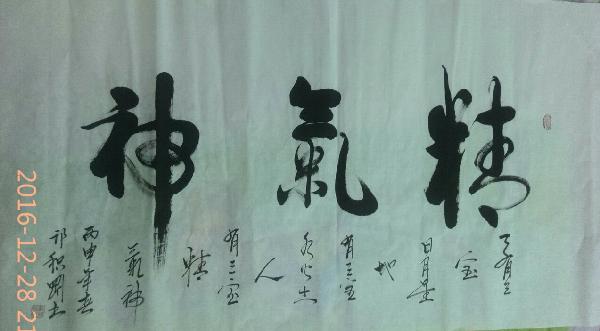 精氣神
天有三
宝
日月星
地
有三宝
水火土
人
有三宝
精
氣神
丙申年春
2016-12-28 21